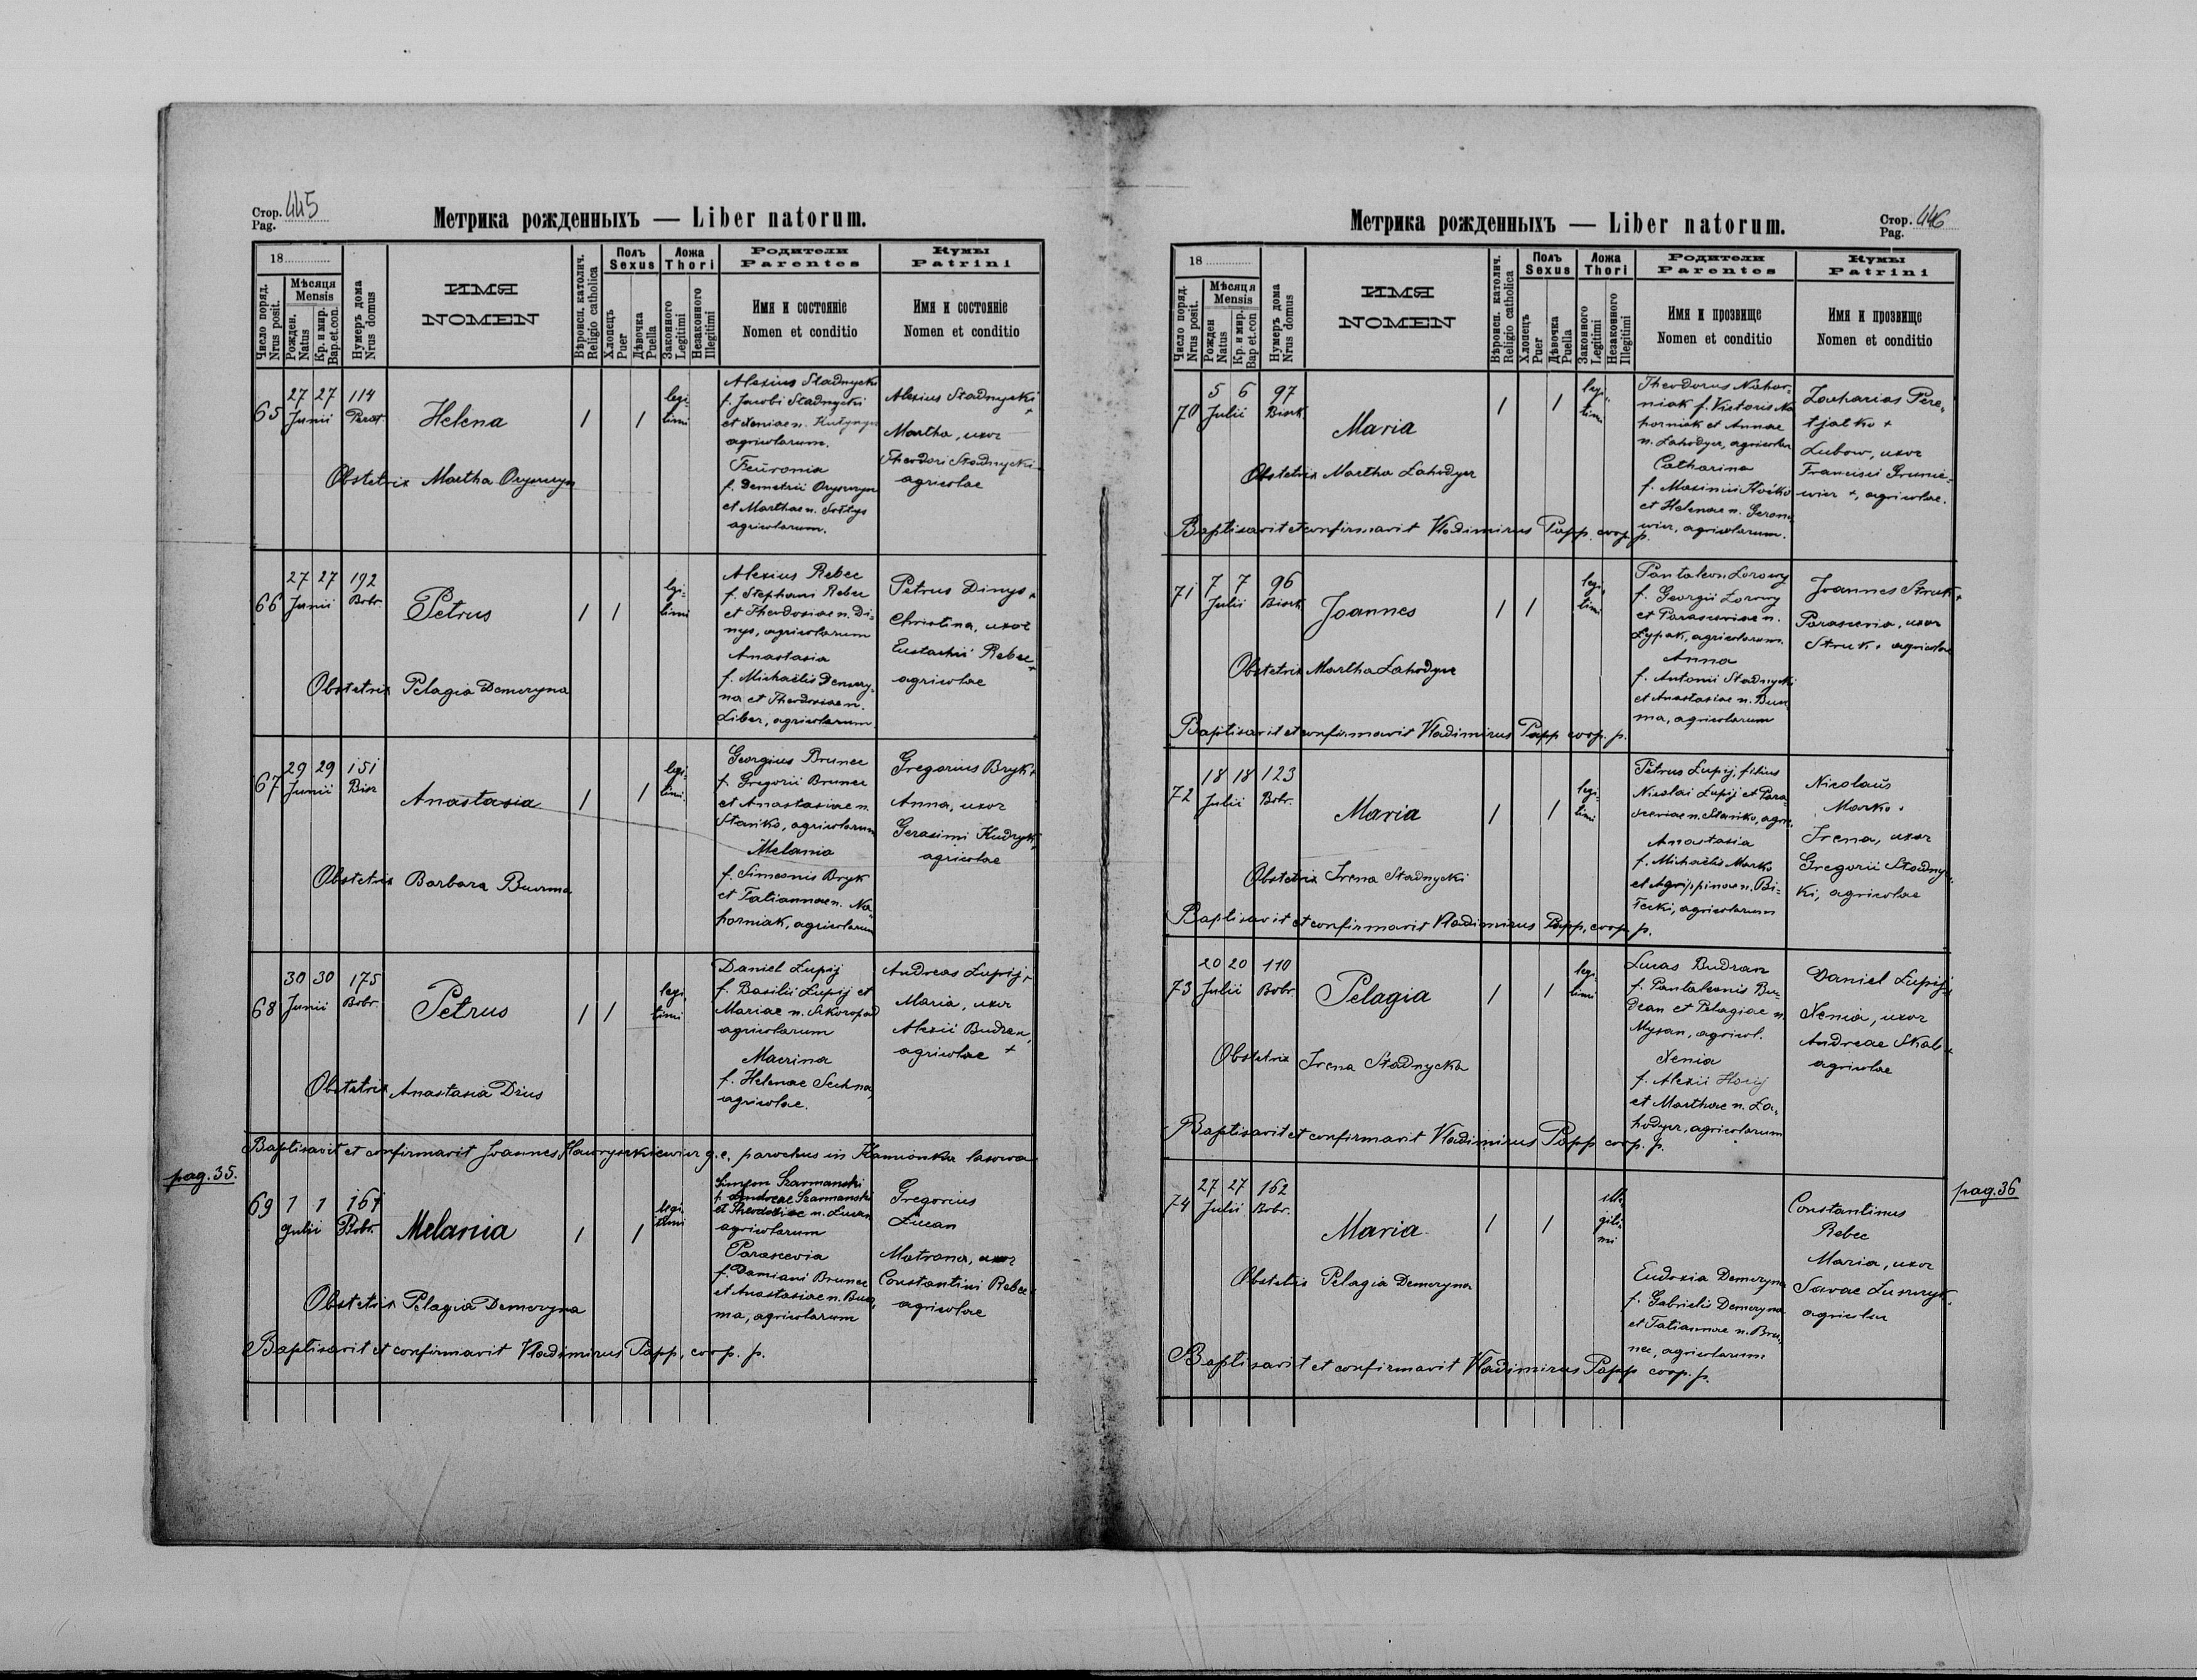 Стор. 445
Pag.
Метрика рожденныхъ — Liber natorum.
18
Число поряд. Nrus posit.
Мѣсяця Mensis
Рожден. Natus
Кр. и мир. Bap. et. con.
Нумеръ дома Nrus domus
ИМЯ
NOMEN
Вѣроисп. католич. Religio catholica
Полъ Sexus
Хлопецъ Puer
Дѣвочка Puella
Ложа Thori
Законного Legitimi
Незаконного Illegitimi
Родители
Parentes
Имя и состояніе
Nomen et conditio
Кумы
Patrini
Имя и состояніе
Nomen et conditio
65 27 27 114
Junii
Helena
1 1
legi-
timi
Alexius Stadnycki
f. Jacobi Stadnycki
et Xeniae n.
agricolarum.
Feuronia
f. Demetrii
et Marthae n.
agricolarum.
Alexius Stadnycki
+
Martha, uxor
Theodori Stadnycki
agricolae
Obstetrix Martha
66 27 27 192
Junii Bobr.
Petrus
1 1
legi-
timi
Alexius Rebec
f. Stephani Rebec
et Theodosiae n. Di-
nys, agricolarum
Anastasia
f. Michaelis Demery-
na et Theodosiae n.
Liber, agricolarum
Petrus Dinys +
Christina, uxor
Eustachii Rebec +
agricolae
Obstetrix Pelagia Demeryna
67 29 29 151
Junii
Anastasia
1 1
legi-
timi
Georgius Brunec
f. Gregorii Brunec
et Anastasiae n.
Stańko, agricolarum
Melania
f. Simeonis Bryk
et Tatiannae n. Na-
horniak, agricolarum
Gregorius Bryk +
Anna, uxor
Gerasimi Kudryk +
agricolae
Obstetrix Barbara Burma
68 30 30 175
Junii Bobr.
Petrus
1 1
legi-
timi
Daniel Łupij
f. Basilii Łupij et
Mariae n. Skoropad
agricolarum
Macrina
f. Helenae Suchna,
agricolae.
Andreas Łupij +
Maria, uxor
Alexii Budzan,
agricolae +
Obstetrix Anastasia Dzius
Baptisavit et confirmavit Joannes Hawryszkiewicz g. c. parochus in Kamionka lasowa
pag. 35.
69 1 1 167
Julii Bobr.
Melania
1 1
legi-
timi
Simeon Szarmanski
f. Andreae Szarmanski
et Theodosiae n. Lucan
agricolarum
Parascevia
f. Damiani Brunec
et Anastasiae n. Bur-
ma, agricolarum
Gregorius
Lucan
Matrona, uxor
Constantini Rebec
agricolae
Obstetrix Pelagia Demeryna
Baptisavit et confirmavit Vladimirus Papp, coop. p.
Метрика рожденныхъ — Liber natorum.
Стор. 446
Pag.
18
Число поряд. Nrus posit.
Мѣсяця Mensis
Рожден Natus
Кр. и мир. Bap et. con
Нумеръ дома Nrus domus
ИМЯ
NOMEN
Вѣроисп. католич. Religio catholica
Полъ Sexus
Хлопецъ Puer
Дѣвочка Puella
Ложа Thori
Законного Legitimi
Незаконного Illegitimi
Родители
Parentes
Имя и прозвище
Nomen et conditio
Кумы
Patrini
Имя и прозвище
Nomen et conditio
70 5 6 97
Julii
Maria
1 1
legi-
timi
Theodorus Nahor-
niak f. Victoris Na-
horniak et Annae
n. Lahodycz, agricolar
Catharina
f. Maximi
et Helenae n. Gerono-
wicz, agricolarum.
Zacharias Pere-
tjatko +
Lubow, uxor
Francisci Grunie-
wicz +, agricolae.
Obstetrix Martha Lahodycz
Baptisavit et confirmavit Vladimirus Papp. coop. p.
71 7 7 96
Julii
Joannes
1 1
legi-
timi
Pantaleon Łozowy
f. Georgii Łozowy
et Parasceviae n.
Łypak, agricolarum.
Anna
f. Antonii Stadnycki
et Anastasiae n. Bur-
ma, agricolarum
Joannes Struk +
Parascevia, uxor
Struk, agricolae
Obstetrix Martha Lahodycz
Baptisavit et confirmavit Vladimirus Papp coop. p.
72 18 18 123
Julii Bobr.
Maria
1 1
legi-
timi
Petrus Łupij, filius
Nicolai Łupij et Para-
sceviae n. Stańko, agri.
Anastasia
f. Michaelis Marko
et Agrippinae n. Bi-
łecki, agricolarum
Nicolaus
Marko
Irena, uxor
Gregorii Stadnyc-
ki, agricolae
Obstetrix Irena Stadnycki
Baptisavit et confirmavit Vladimirus Papp, coop. p.
73 20 20 110
Julii Bobr.
Pelagia
1 1
legi-
timi
Lucas Budzan
f. Pantaleonis Bu-
dzan et Pelagiae n.
Mysan, agricol.
Xenia
f. Alexii
et Marthae n. La-
hodycz, agricolarum
Daniel Łupij +
Xenia, uxor
Andreae Skab +
agricolae
Obstetrix Irena Stadnycka
Baptisavit et confirmavit Vladimirus Papp coop. p.
pag. 36
74 27 27 162
Julii Bobr.
Maria
1 1
ille-
giti-
mi
Eudoxia Demeryna
f. Gabrielis Demeryna
et Tatiannae n. Bru-
nec, agricolarum
Constantinus
Rebec
Maria, uxor
Savae
agricolae
Obstetrix Pelagia Demeryna
Baptisavit et confirmavit Vladimirus Papp coop. p.